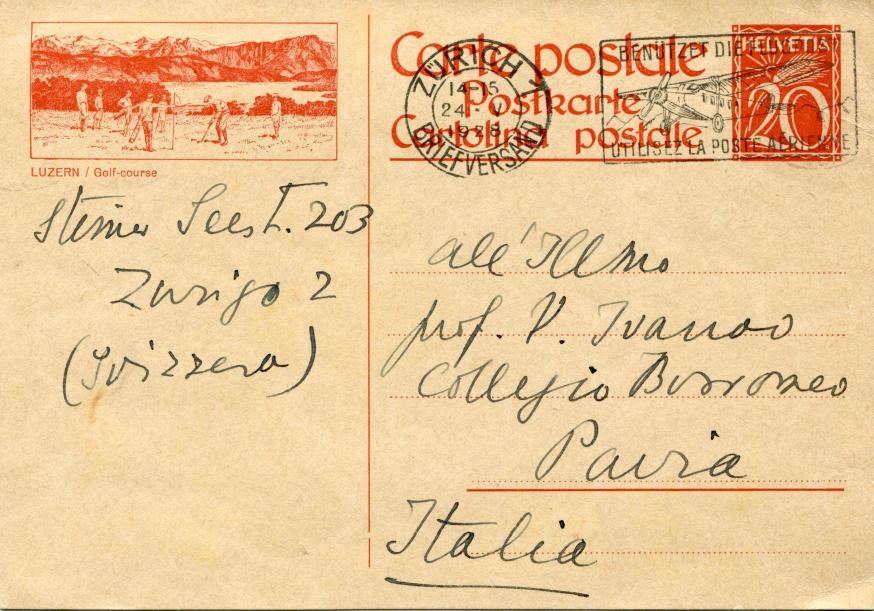 LUZERN / Golf-course
Carte postale
Postkarte
Cartolina postale
ZÜRICH 7
14-15
24 V
1928
BRIEFVERSAND
BENÜTZET DIE FLUGPOST
UTILISEZ LA POSTE AÉRIENNE
HELVETIA
20
Steiner Seestr. 203
Zurigo 2
(Svizzera)
All'Illmo
prof. V. Ivanov
Collegio Borromeo
Pavia
Italia